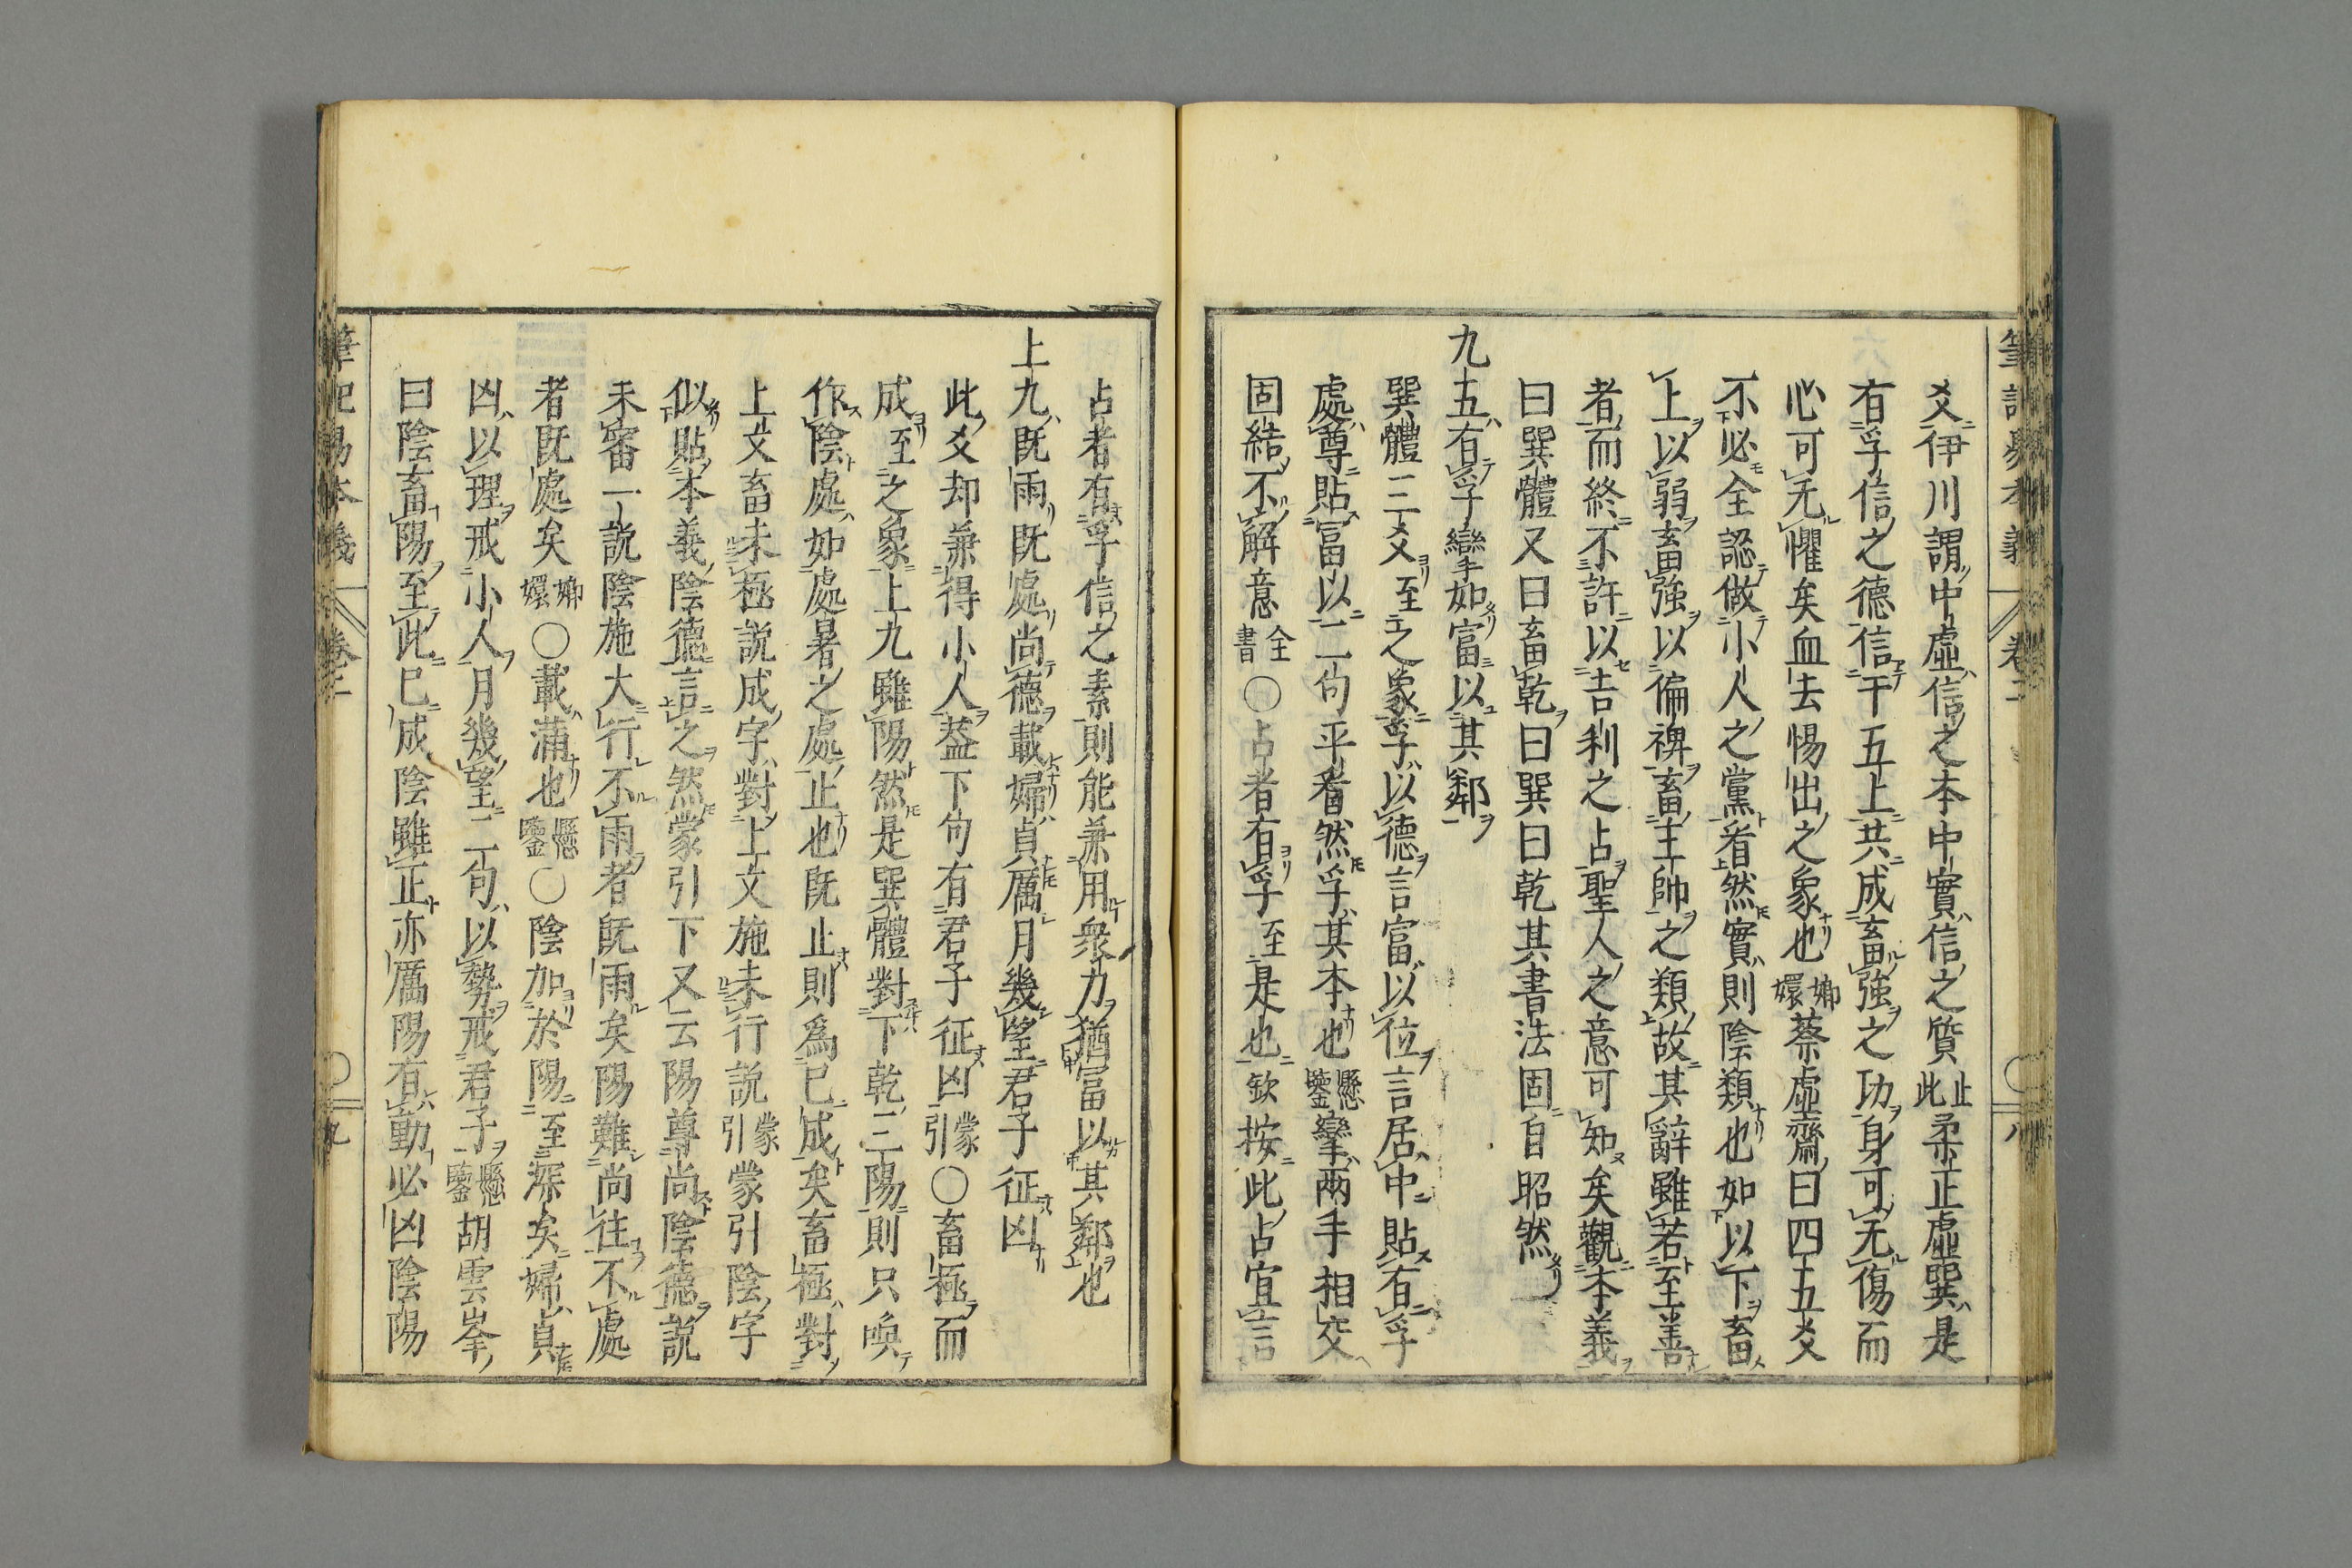 爻伊川謂中虛信之本中實信之質止此柔正虛巽是
有孚信之德信干五上共成畜強之功身可无傷而
心可无懼矣血去惕出之象也嫏嬛蔡虛齋曰四五爻
不必全認做小人之黨看然實則陰類也如以下畜
上以弱畜強以偏裨畜主帥之類故其辭雖若至善
者而終不許以吉利之占聖人之意可知矣觀本義
曰巽體又曰畜乾曰巽曰乾其書法固自昭然
九五有孚攣手如富以其鄰
巽體三爻至之象孚以德言富以位言居中貼有孚
處尊貼富以二句平看然孚其本也懸鑒攣兩手相交
固結不解意全書〇占者有孚至是也欽按此占宜言
占者有孚信之素則能兼用衆力猶富以其鄰也
上九既雨既處尚德載婦貞厲月幾望君子征凶
此爻却兼得小人葢下句有君子征凶蒙引〇畜極而
成至之象上九雖陽然是巽體對下乾三陽則只喚
作陰處如處暑之處止也既止則爲已成矣畜極對
上文畜未極説成字對上文施未行説蒙引蒙引陰字
似貼本義陰德言之然蒙引下又云陽尊尚陰德説
未審一説陰施大行不雨者既雨矣陽難尚往不處
者既處矣嫏嬛〇載滿也懸鑒〇陰加於陽至深矣婦貞
凶以理戒小人月幾望二句以勢戒君子懸鑒胡雲峯
曰陰畜陽至此已成陰雖正亦厲陽有動必凶陰陽
筆記易本義 卷二 〇 八
筆記易本義 卷二 〇 九